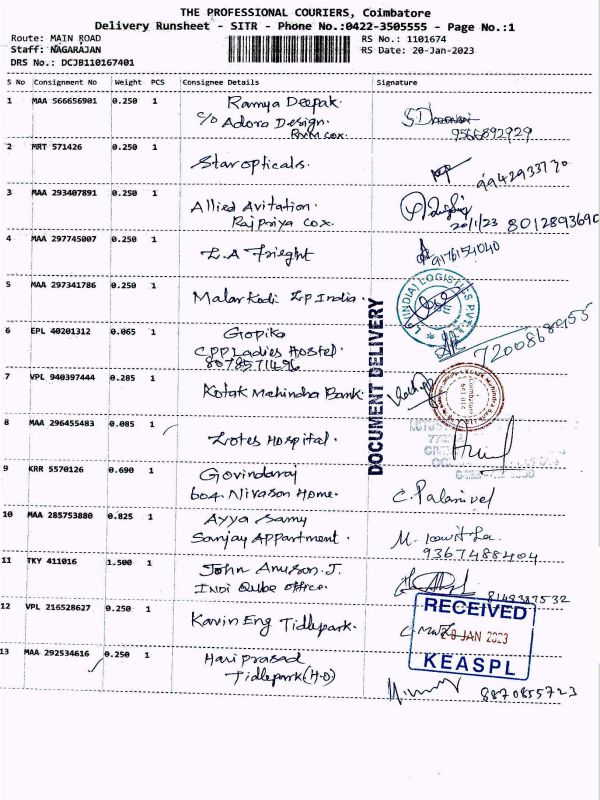 THE PROFESSIONAL COURIERS, Coimbatore
Delivery Runsheet - SITR - Phone No.:0422-3505555 - Page No.:1
Route: MAIN ROAD
RS No.: 1101674
Staff: NAGARAJAN
RS Date: 20-Jan-2023
DRS No.: DCJB110167401
S No Consignment No Weight PCS Consignee Details Signature
1 MAA 566656901 0.250 1 Ramya Deepak.
C/o Adora Design.
9566892929
2 MRT 571426 0.250 1
Star opticals.
9942933770
3 MAA 293407891 0.250 1
Allied Avitation.
Rajpriya cox. 20/1/23 8012893690
4 MAA 297745007 0.250 1
L.A Frieght 9176154040
5 MAA 297341786 0.250 1
Malar Kodi Lp India.
(INDIA) LOGISTICS PVT.
6 EPL 40201312 0.065 1 Gopika
CPP Ladies Hostel.
8078571496
7200868955
7 VPL 940397444 0.285 1
Kotak Mahindra Bank.
DOCUMENT DELIVERY
8 MAA 296455483 0.085 1
Lotes Hospital.
9 KRR 5570126 0.690 1 Govindaraj
604. Nivasan Home. C. Palanivel
10 MAA 285753880 0.825 1 Ayya Samy
Sanjay Appartment. M.
9367488404
11 TKY 411016 1.500 1 John Anuson. J.
INDI Qube office.
8149387532
12 VPL 216528627 0.250 1
Karvin Eng Tidlepark.
RECEIVED
20 JAN 2023
KEASPL
13 MAA 292534616 0.250 1 Hari prasad
Tidlepark (H.O)
8870855723